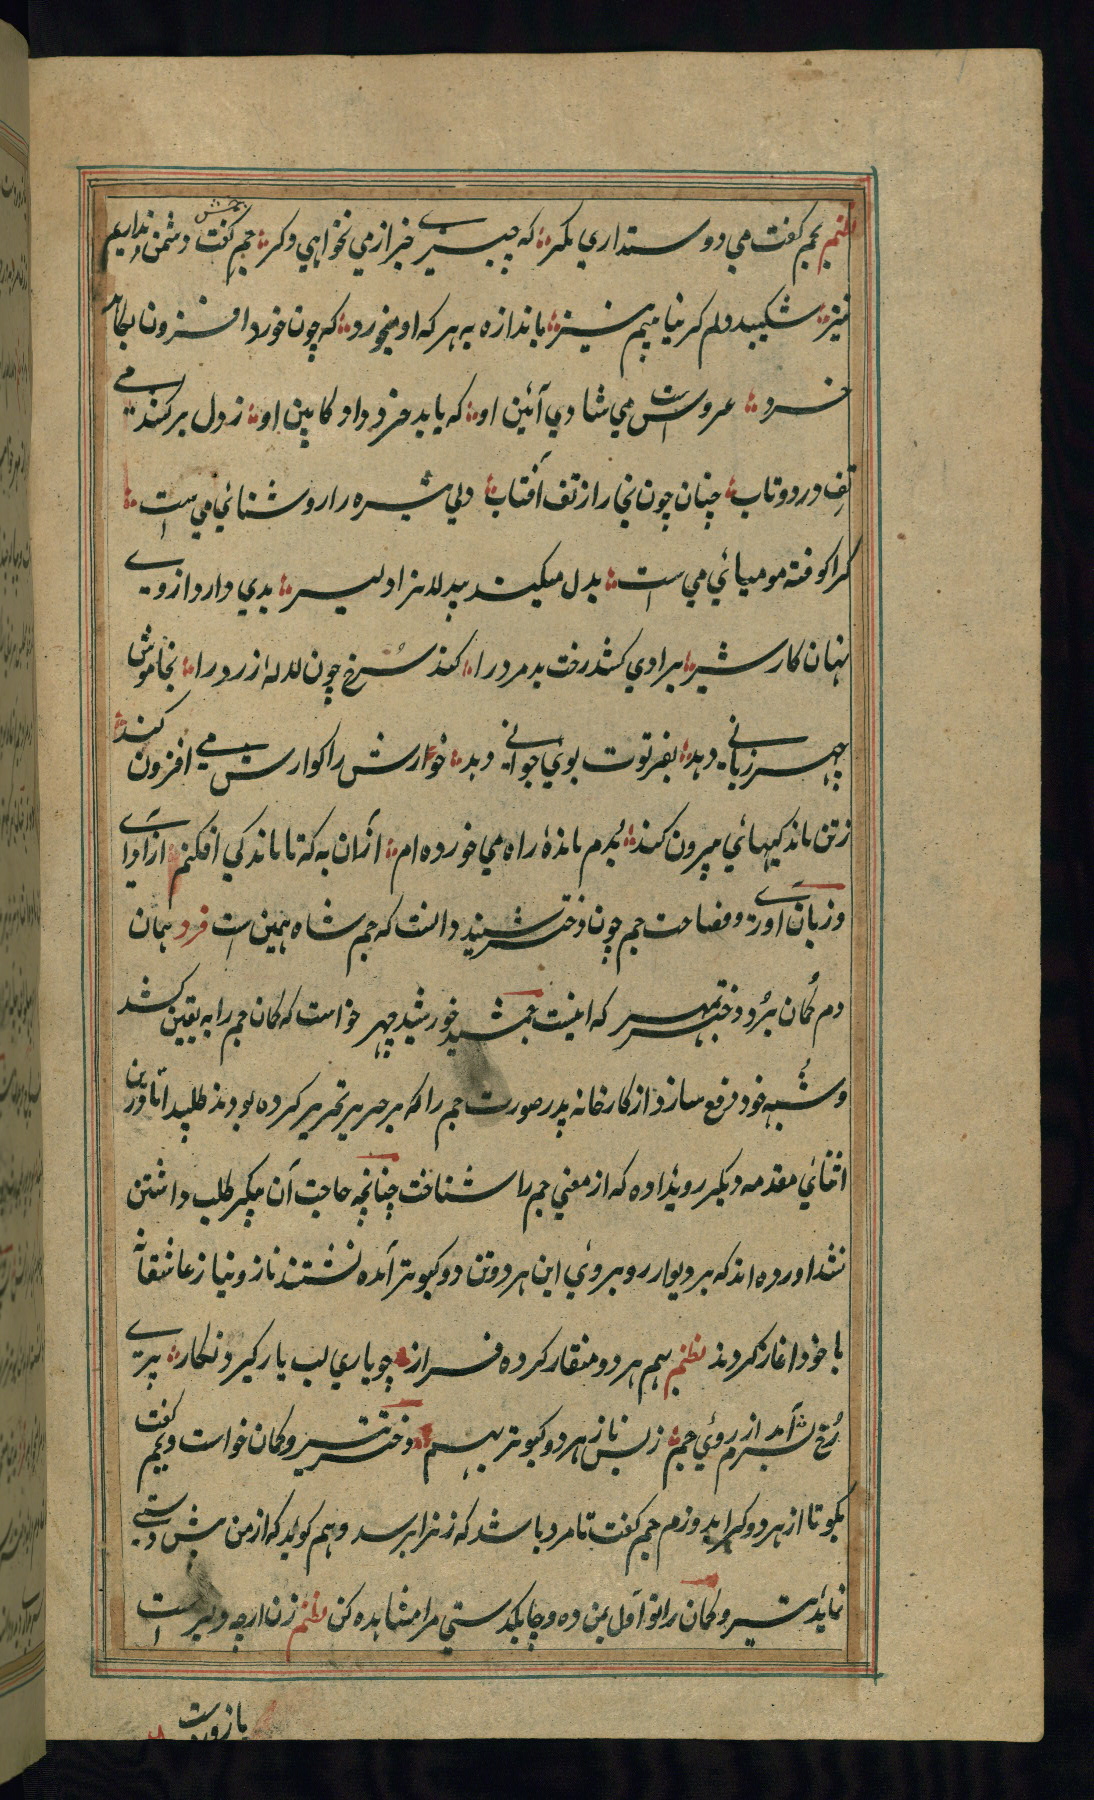 نظم بجم گفت می دوستداری مگر ؞ که چیزی جز از می نخواهی دگر ؞ جم گفت دشمنش نداریم
نیز ؞ شکیبد دلم گر نیابیم نیز ؞ باندازه به هر که او میخورد ؞ که چون خورد افزون بکاهد
خرد ؞ عروسیست می شادی آئین او ؞ که باید خرد داد کابین او ؞ ز دل برکند می
تف درد و تاب ؞ چنان چون بخار را ز تف آفتاب ؞ دل تیره را روشنائی می است ؞
کرا کوفته مومیائی می است ؞ بدل میکند بددلانرا دلیر ؞ پدید آرد از روبهی
نهان کار شیر ؞ برادی کشد زفت بد مرد را ؞ کند سرخ چون لاله رخ زرد را ؞ بخاموش
چیره زبانی دهد ؞ بفرتوت بوی جوانی دهد ؞ خوارش را گوارش می افزون کند ؞
ز تن ماندگیهای بیرون کند ؞ بدم مانده راه می خورده ام ؞ از آن به که تا ماندگی افکنم ؞ از اوای
و زبان آوری و فصاحت جم چون دختر شنید دانست که جم شاه همین است فرد همان
دم گمان برد دختر بمهر که اینست جمشید خورشید چهر خواست که گمان جم را به یقین کشد
و شبه خود رفع سازد از کارخانه پدر صورت جم را که بر حریر تحریر کرده بودند طلبید اتا درین
اثنای مقدمه دیگر رویداده که از معنی جم را شناخت چنانچه حاجت آن پیکر طلب داشتن
نشد اورده اند که بر دیوار روبروی این هر دو تن دو کبوتر آمده نشستند ناز و نیاز عاشقانه
با خود اغاز کردند نظم بهم هر دو منقار کرده فراز ؞ چو یاری لب یار گیرد نگار ؞ پری
رخ بشرم آمد از روی جم ؞ ز بس ناز هر دو کبوتر بهم ؞ دختر تیر و کمان خواست و بجم گفت
بگو تا از هر دو کرا بدوزم جم گفت تا مرد باشد که زنرا برسد و هم گوید که از من پیش دستی
نماید تیر و کمان را تو اول بمن ده و چابکدستی مرا مشاهده کن نظم زن ارچه دلیر است
بازورست